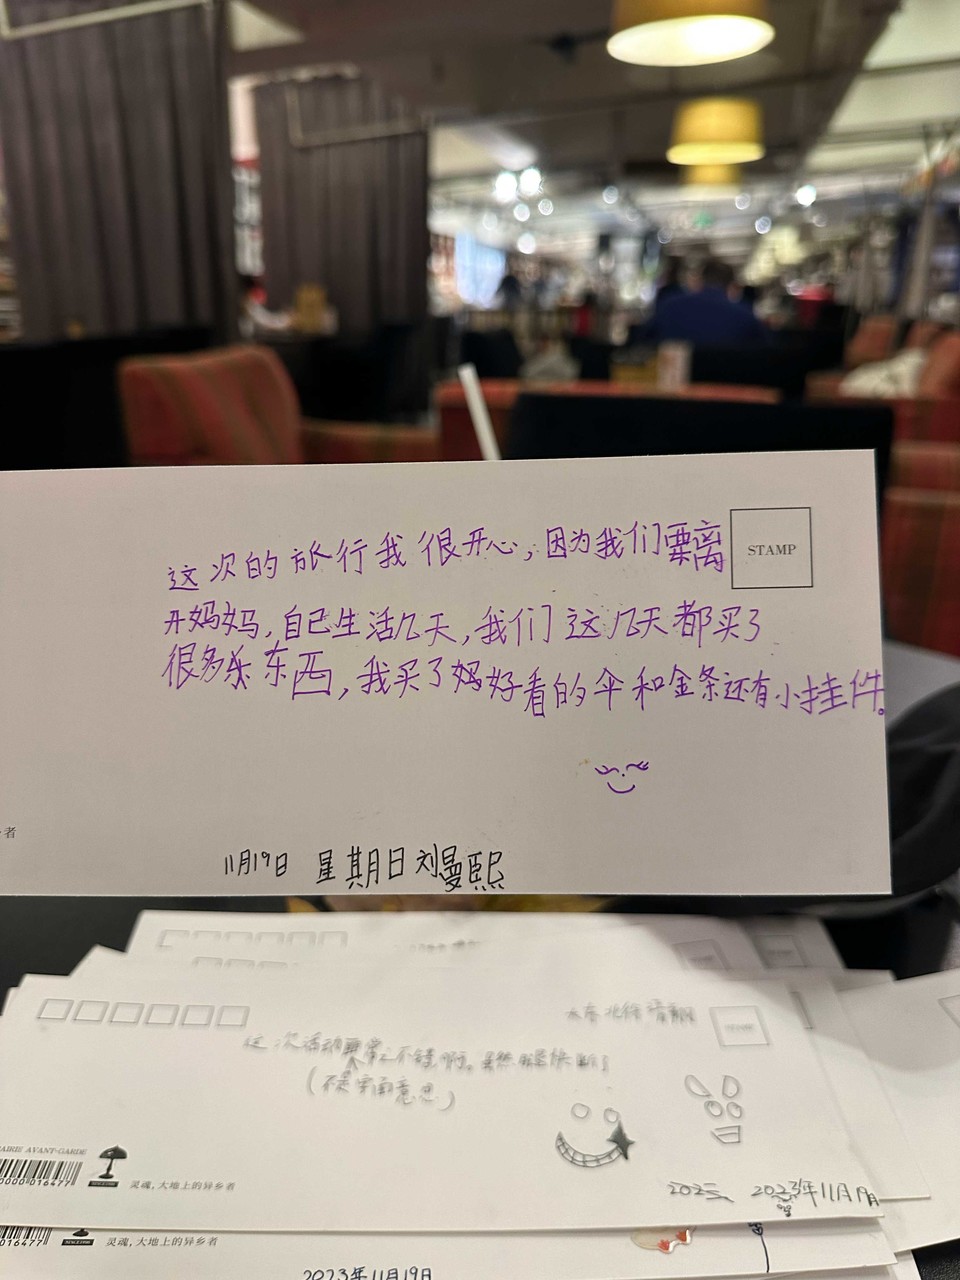 这次的旅行我很开心，因为我们要离
STAMP
开妈妈，自己生活几天，我们这几天都买了
很多东东西，我买了妈好看的伞和金条还有小挂件。
者
11月19日 星期日 刘曼熙
这次活动非常之不错啊。虽然腿快断了
（不是字面意思）
AIRIE AVANT-GARDE
0000 016477
灵魂，大地上的异乡者
2023年11月19日
016477
灵魂，大地上的异乡者
2023年11月19日